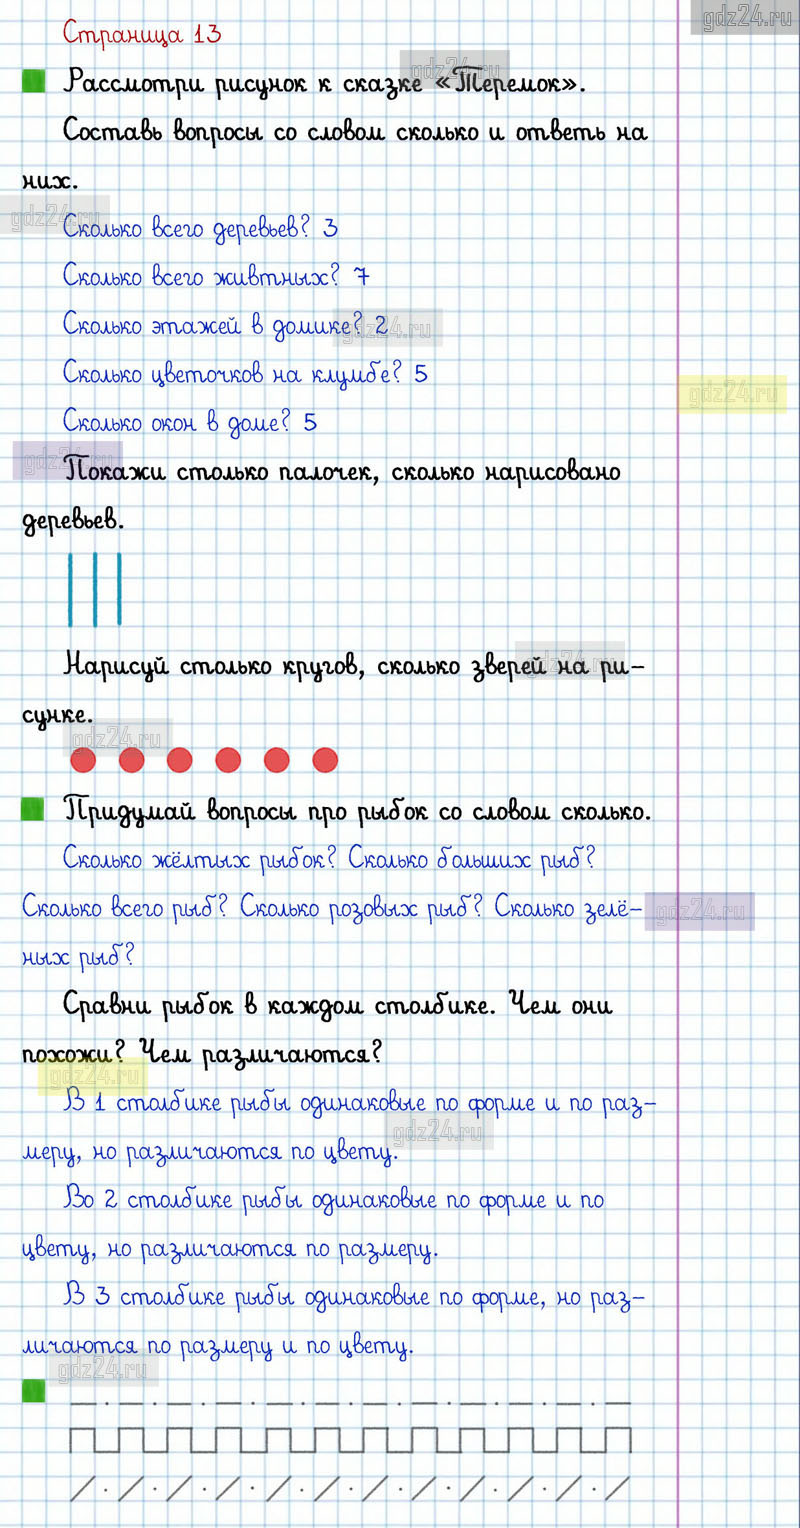 gdz24.ru
Страница 13
gdz24.ru
Рассмотри рисунок к сказке «Теремок».
Составь вопросы со словом сколько и ответь на
них.
gdz24.ru
Сколько всего деревьев? 3
Сколько всего живтных? 7
Сколько этажей в домике? 2
gdz24.ru
Сколько цветочков на клумбе? 5
gdz24.ru
Сколько окон в доме? 5
gdz24.ru
Покажи столько палочек, сколько нарисовано
деревьев.
Нарисуй столько кругов, сколько зверей на ри-
gdz24.ru
сунке.
gdz24.ru
Придумай вопросы про рыбок со словом сколько.
Сколько жёлтых рыбок? Сколько больших рыб?
Сколько всего рыб? Сколько розовых рыб? Сколько зелё-
gdz24.ru
ных рыб?
Сравни рыбок в каждом столбике. Чем они
похожи? Чем различаются?
gdz24.ru
В 1 столбике рыбы одинаковые по форме и по раз-
gdz24.ru
меру, но различаются по цвету.
Во 2 столбике рыбы одинаковые по форме и по
цвету, но различаются по размеру.
В 3 столбике рыбы одинаковые по форме, но раз-
личаются по размеру и по цвету.
gdz24.ru